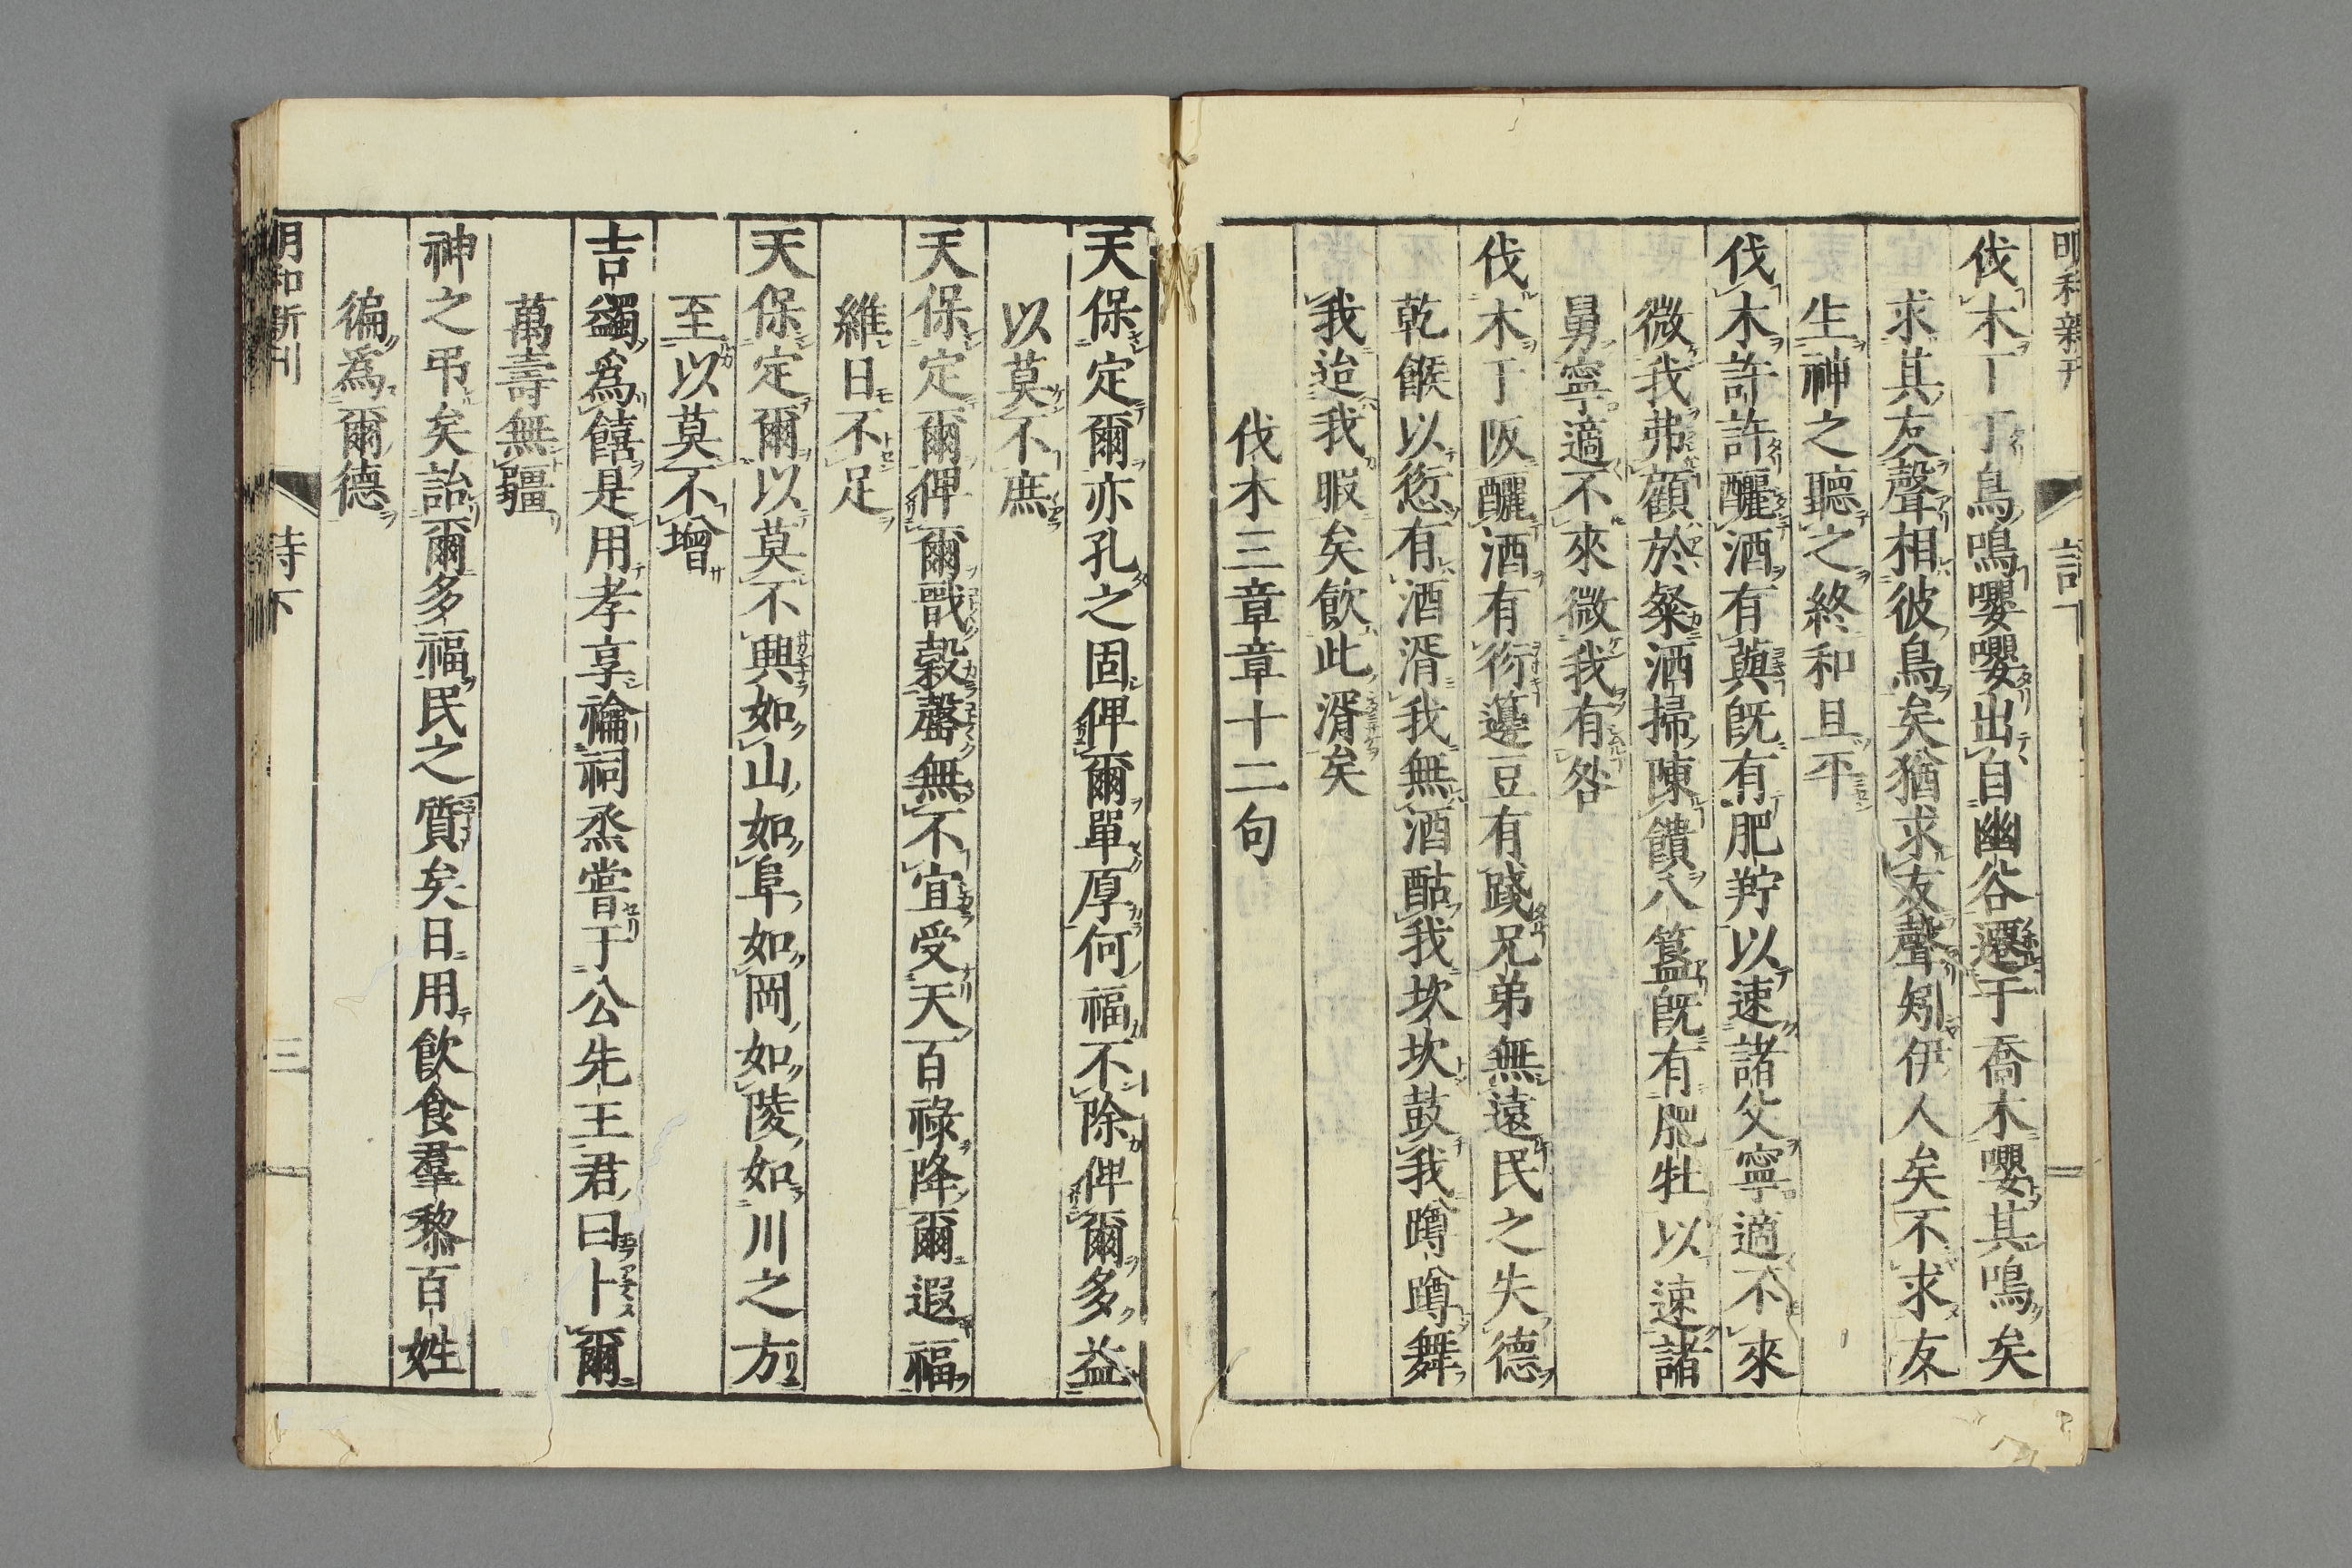 明和新刊 詩下
伐木丁丁鳥鳴嚶嚶出自幽谷遷于喬木嚶其鳴矣
求其友聲相彼鳥矣猶求友聲矧伊人矣不求友
生神之聽之終和且平
伐木許許釃酒有藇既有肥羜以速諸父寧適不來
微我弗顧於粲洒掃陳饋八簋既有肥牡以速諸
舅寧適不來微我有咎
伐木于阪釃酒有衍籩豆有踐兄弟無遠民之失德
乾餱以愆有酒湑我無酒酤我坎坎鼓我蹲蹲舞
我迨我暇矣飲此湑矣
伐木三章章十二句
天保定爾亦孔之固俾爾單厚何福不除俾爾多益
以莫不庶
天保定爾俾爾戩穀罄無不宜受天百祿降爾遐福
維日不足
天保定爾以莫不興如山如阜如岡如陵如川之方
至以莫不增
吉蠲爲饎是用孝享禴祠烝嘗于公先王君曰卜爾
萬壽無疆
神之弔矣詒爾多福民之質矣日用飲食羣黎百姓
徧爲爾德
明和新刊 詩下 三